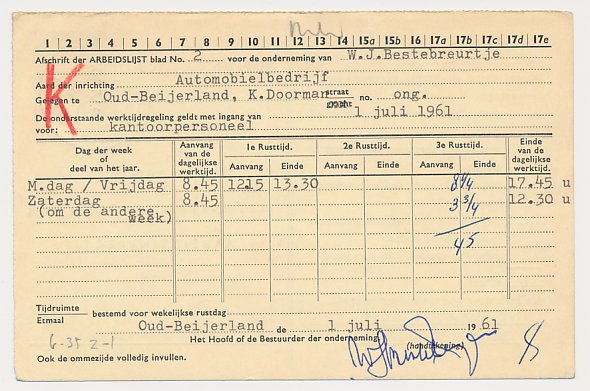 1 2 3 4 5 6 7 8 9 10 11 12 13 14 15a 15b 16 17a 17b 17c 17d 17e
K
Afschrift der ARBEIDSLIJST blad No. 2 voor de onderneming van W.J.Bestebreurtje
Aard der inrichting Automobielbedrijf
Gelegen te Oud-Beijerland, K.Doorman straat no. ong.
De onderstaande werktijdregeling geldt met ingang van 1 juli 1961
voor: kantoorpersoneel
Dag der week of deel van het jaar. Aanvang van de dagelijkse werktijd. 1e Rusttijd. 2e Rusttijd. 3e Rusttijd. Einde van de dagelijkse werktijd.
Aanvang Einde Aanvang Einde Aanvang Einde
M.dag / Vrijdag 8.45 1215 13.30 8 1/4 17.45 u
Zaterdag 8.45 3 3/4 12.30 u
(om de andere
week)
45
Tijdruimte
Etmaal bestemd voor wekelijkse rustdag
Oud-Beijerland de 1 juli 1961
Het Hoofd of de Bestuurder der onderneming,
(handtekening)
6-35 2-1
Ook de ommezijde volledig invullen.